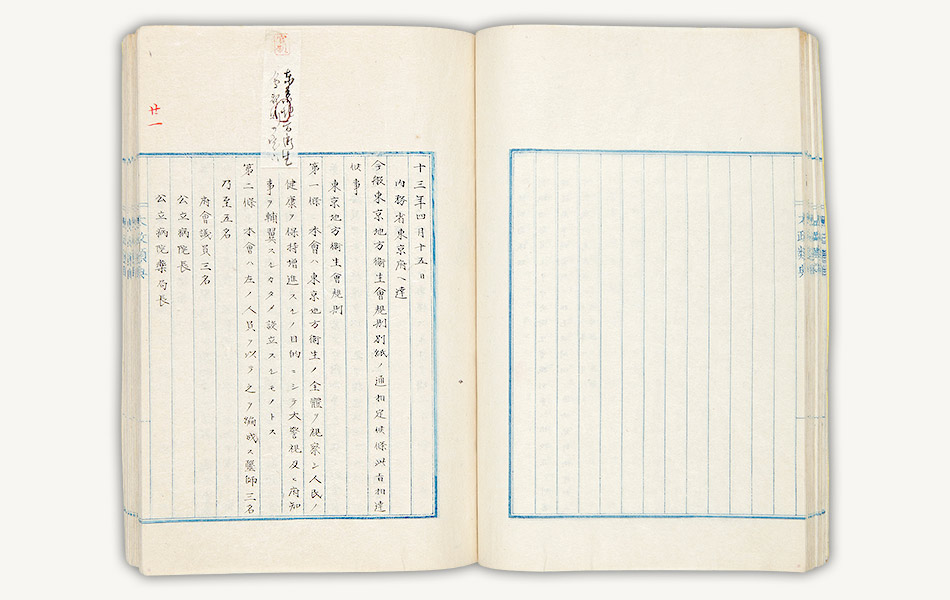 東京地方衛生
廿一
十三年四月十五日
内務省東京府ヘ達
今般東京地方衛生會規則別紙ノ通相定候條此旨相達
候事
東京地方衛生會規則
第一條 本會ハ東京地方衛生ノ全體ヲ視察シ人民ノ
健康ヲ保持増進スルノ目的ニシテ大警視及ヒ府知
事ヲ輔翼スルカタメ設立スルモノトス
第二條 本會ハ左ノ人員ヲ以テ之ヲ編成ス醫師三名
乃至五名
府會議員三名
公立病院長
公立病院藥局長
太政類典
太政類典